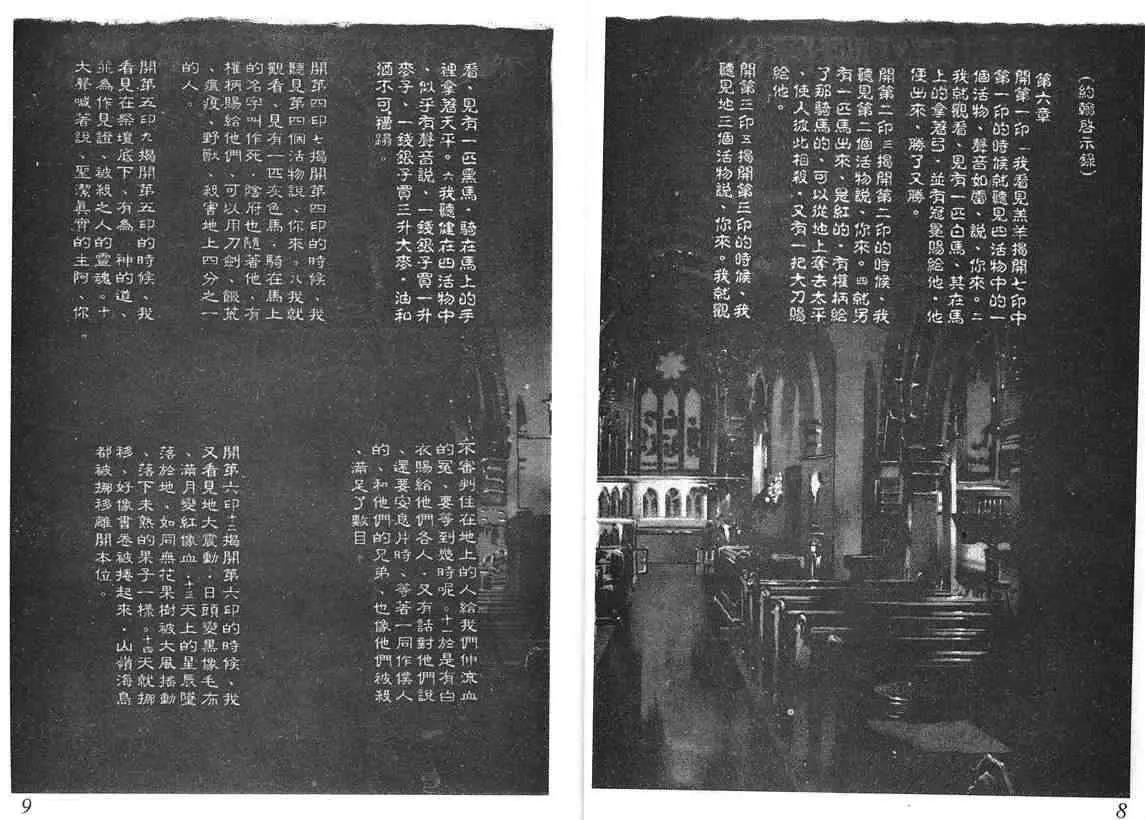 (約翰啓示錄)
第六章
開第一印一我看見羔羊揭開七印中
第一印的時候就聽見四活物中的一
個活物、聲音如雷、說、你來。二
我就觀看、見有一匹白馬、其在馬
上的拿著弓、並有冠冕賜給他、他
便出來、勝了又勝。
開第二印三揭開第二印的時候、我
聽見第二個活物說、你來。四就另
有一匹馬出來、是紅的、有權柄給
了那騎馬的、可以從地上奪去太平
、使人彼此相殺、又有一把大刀賜
給他。
開第三印五揭開第三印的時候、我
聽見地三個活物說、你來。我就觀
看、見有一匹黑馬、騎在馬上的手
裡拿著天平。六我聽健在四活物中
、似乎有聲音說、一錢銀子買一升
麥子、一錢銀子買三升大麥、油和
酒不可糟蹋。
開第四印七揭開第四印的時候、我
聽見第四個活物說、你來。八我就
觀看、見有一匹灰色馬、騎在馬上
的名字叫作死、陰府也隨著他、有
權柄賜給他們、可以用刀劍、饑荒
、瘟疫、野獸、殺害地上四分之一
的人。
開第五印九揭開第五印的時候、我
看見在祭壇底下、有為、神的道、
並為作見證、被殺之人的靈魂。十
大聲喊著說、聖潔真實的主阿、你
。
不審判住在地上的人給我們伸流血
的冤、要等到幾時呢。十一於是有白
衣賜給他們各人、又有話對他們說
、還要安息片時、等著一同作僕人
的、和他們的兄弟、也像他們被殺
、滿足了數目。
開第六印十二揭開第六印的時候、我
又看見地大震動、日頭變黑像毛布
、滿月變紅像血、十三天上的星辰墜
落於地、如同無花果樹被大風搖動
、落下未熟的果子一樣。十四天就挪
移、好像書卷被捲起來、山嶺海島
都被挪移離開本位。
9
8